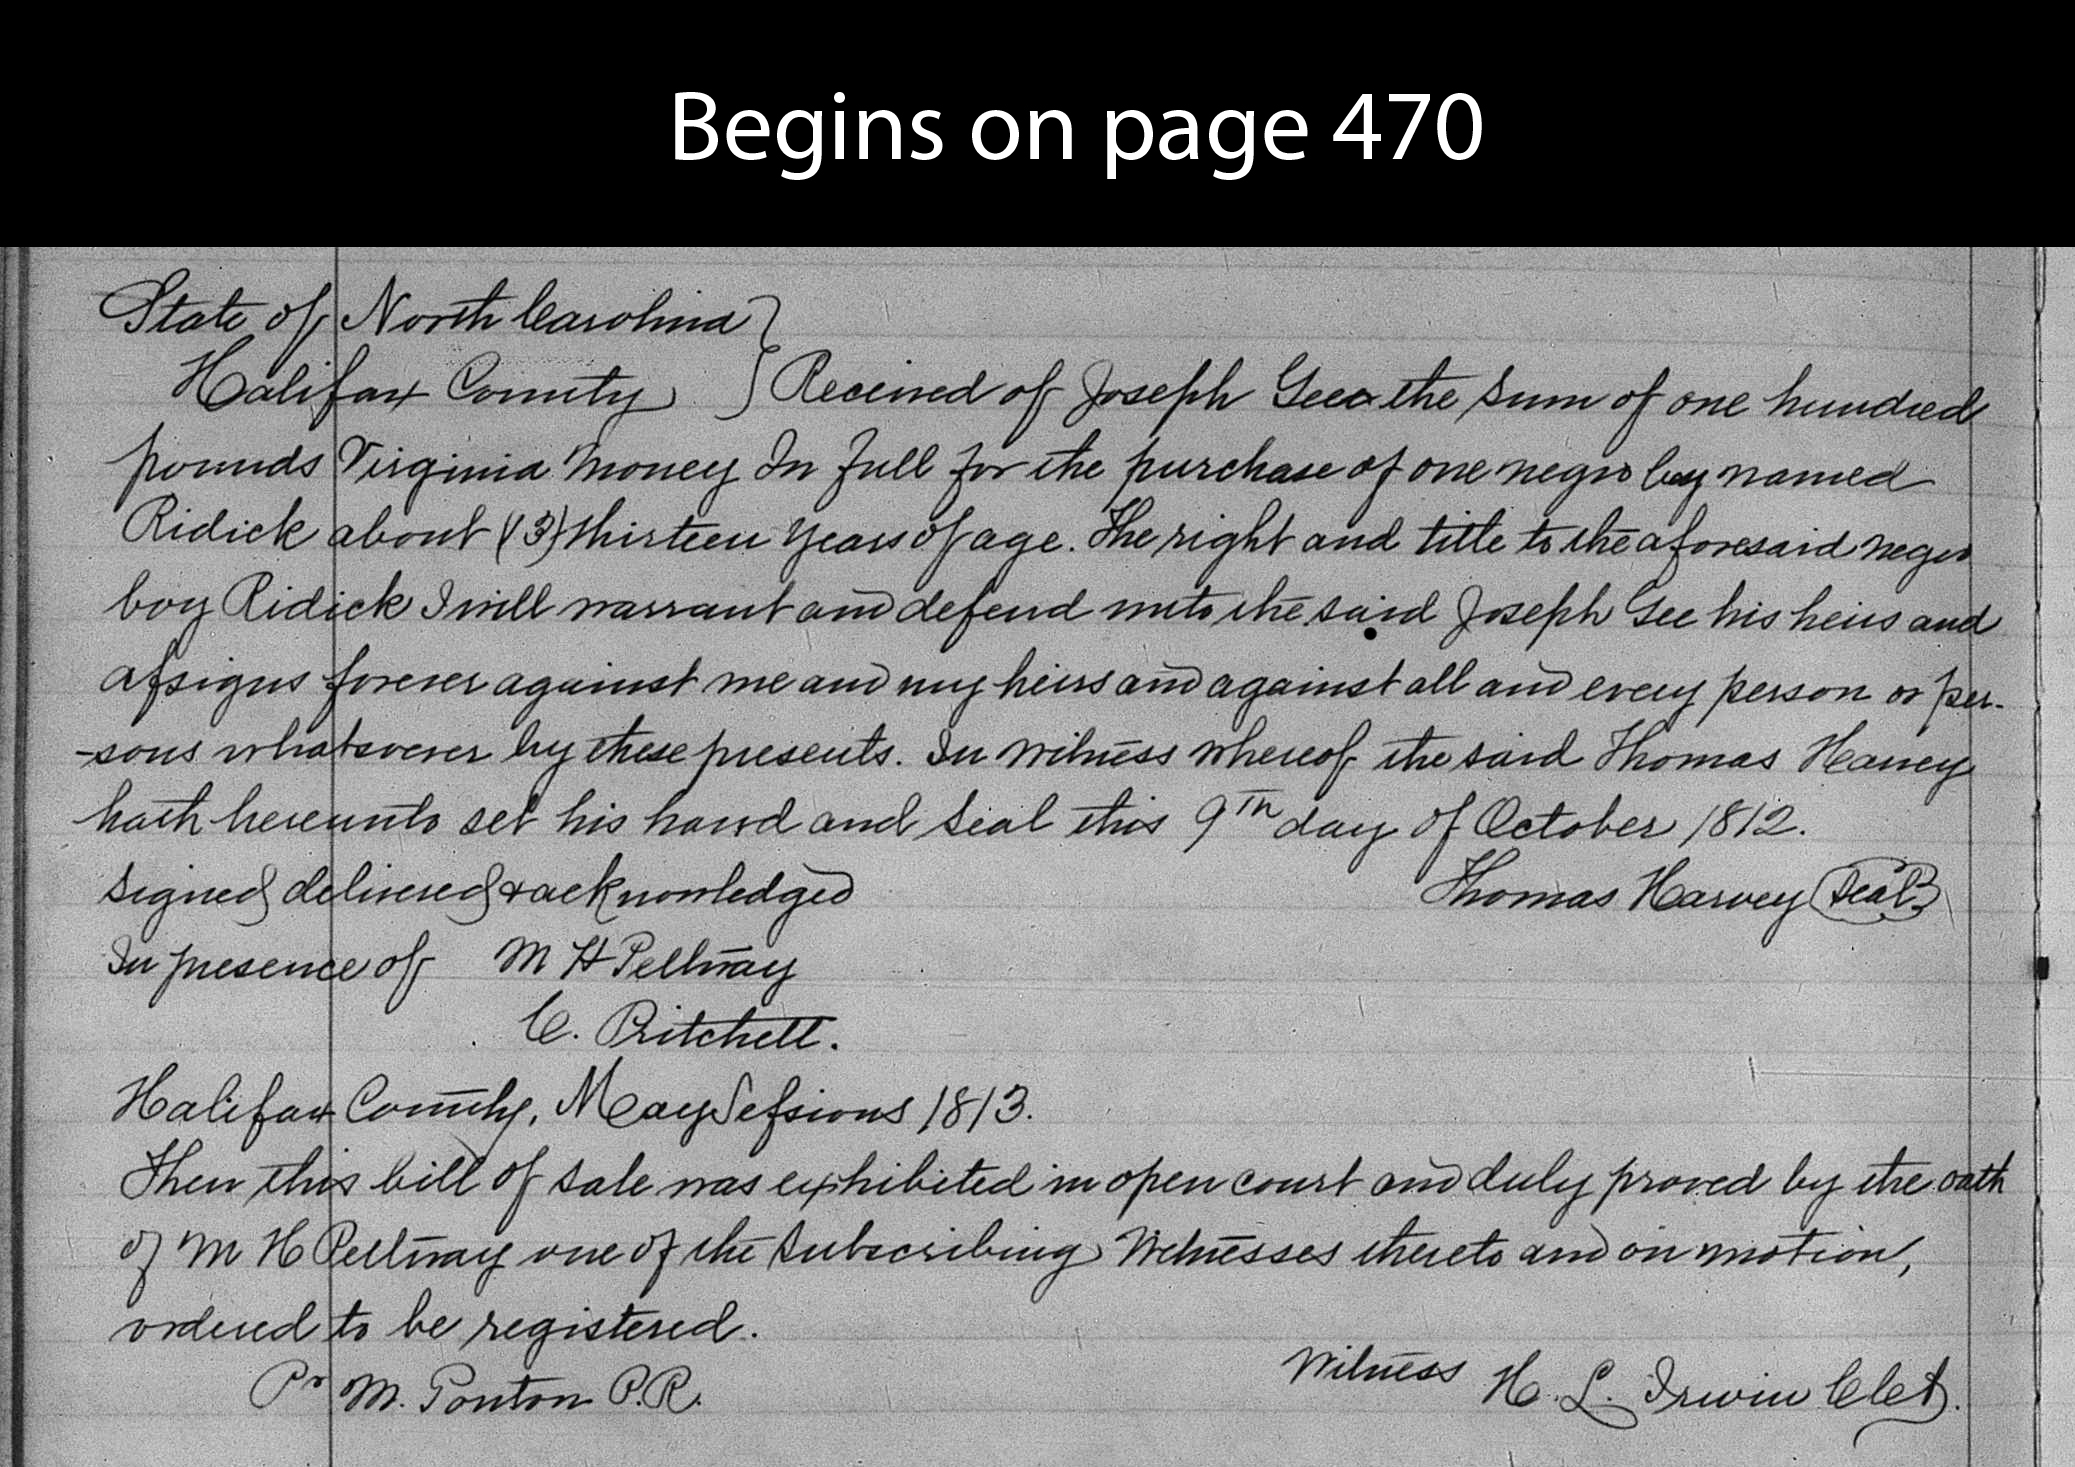 Begins on page 470
State of North Carolina }
Halifax County } Received of Joseph Gee the sum of one hundred
pounds Virginia Money In full for the purchase of one negro boy named
Ridick about (13) thirteen years of age. The right and title to the aforesaid negro
boy Ridick I will warrant and defend unto the said Joseph Gee his heirs and
assigns forever against me and my heirs and against all and every person or per-
-sons whatsoever by these presents. In witness whereof the said Thomas Harvey
hath hereunto set his hand and seal this 9th day of October 1812.
Signed delivered & acknowledged Thomas Harvey (Seal)
In presence of M H Pettway
C. Pritchett.
Halifax County, May Sessions 1813.
Then this bill of sale was exhibited in open court and duly proved by the oath
of M H Pettway one of the subscribing Witnesses thereto and on motion,
ordered to be registered.
Witness H. L. Irwin Clet.
Pr M. Ponton P.R.